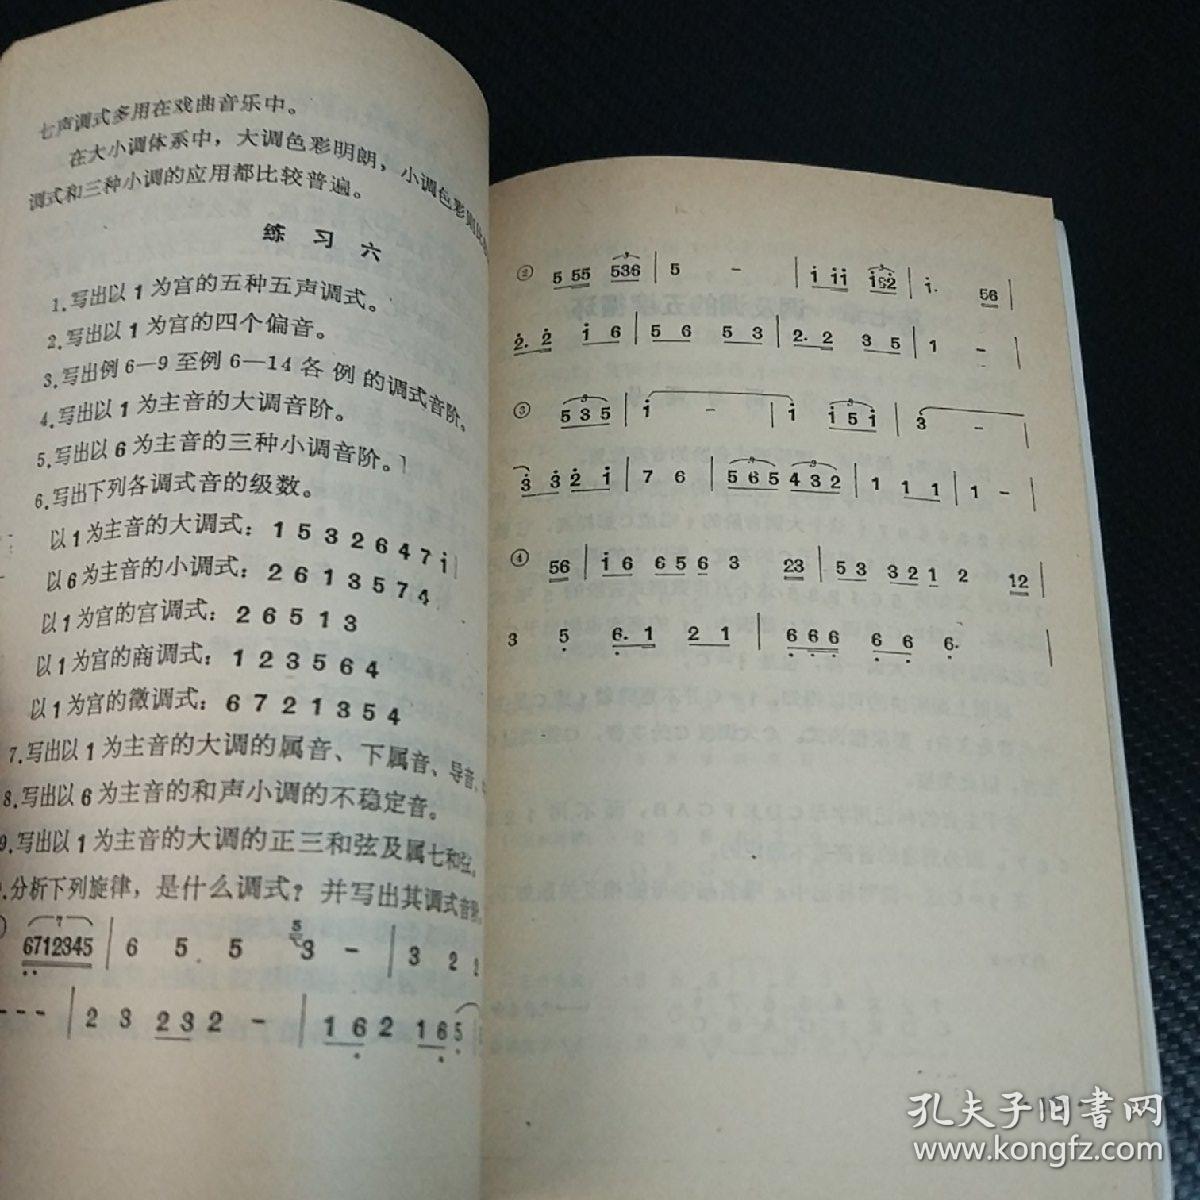 七声调式多用在戏曲音乐中。
在大小调体系中，大调色彩明朗，小调色彩则
调式和三种小调的应用都比较普遍。
练 习 六
1.写出以1为宫的五种五声调式。
2.写出以1为宫的四个偏音。
3.写出例6—9至例6—14各例的调式音阶。
4.写出以1为主音的大调音阶。
5.写出以6为主音的三种小调音阶。
6.写出下列各调式音的级数。
以1为主音的大调式：1 5 3 2 6 4 7 i
以6为主音的小调式：2 6 1 3 5 7 4
以1为宫的宫调式：2 6 5 1 3
以1为宫的商调式：1 2 3 5 6 4
以1为宫的徵调式：6 7 2 1 3 5 4
7.写出以1为主音的大调的属音、下属音、导音、
8.写出以6为主音的和声小调的不稳定音。
9.写出以1为主音的大调的正三和弦及属七和弦。
.分析下列旋律，是什么调式？并写出其调式音
7
6712345 | 6 5 . 5 5 3 - | 3 2 2
- - - | 2 3 2 3 2 - | 1 6 2 1 6 5
② 5 55 536 | 5 - | i i i i 6 2 | i. 56 |
2. 2 i 6 | 5 6 5 3 | 2. 2 3 5 | 1 - |
③ 5 3 5 | i - i i 5 i | 3 - |
3 3 2 i | 7 6 | 5 6 5 4 3 2 | 1 1 1 | 1 - |
④ 56 | i 6 6 5 6 3 23 | 5 3 3 2 1 2 12 |
3 5 6. 1 2 1 | 6 6 6 6 6 6. |
孔夫子旧书网
www.kongfz.com